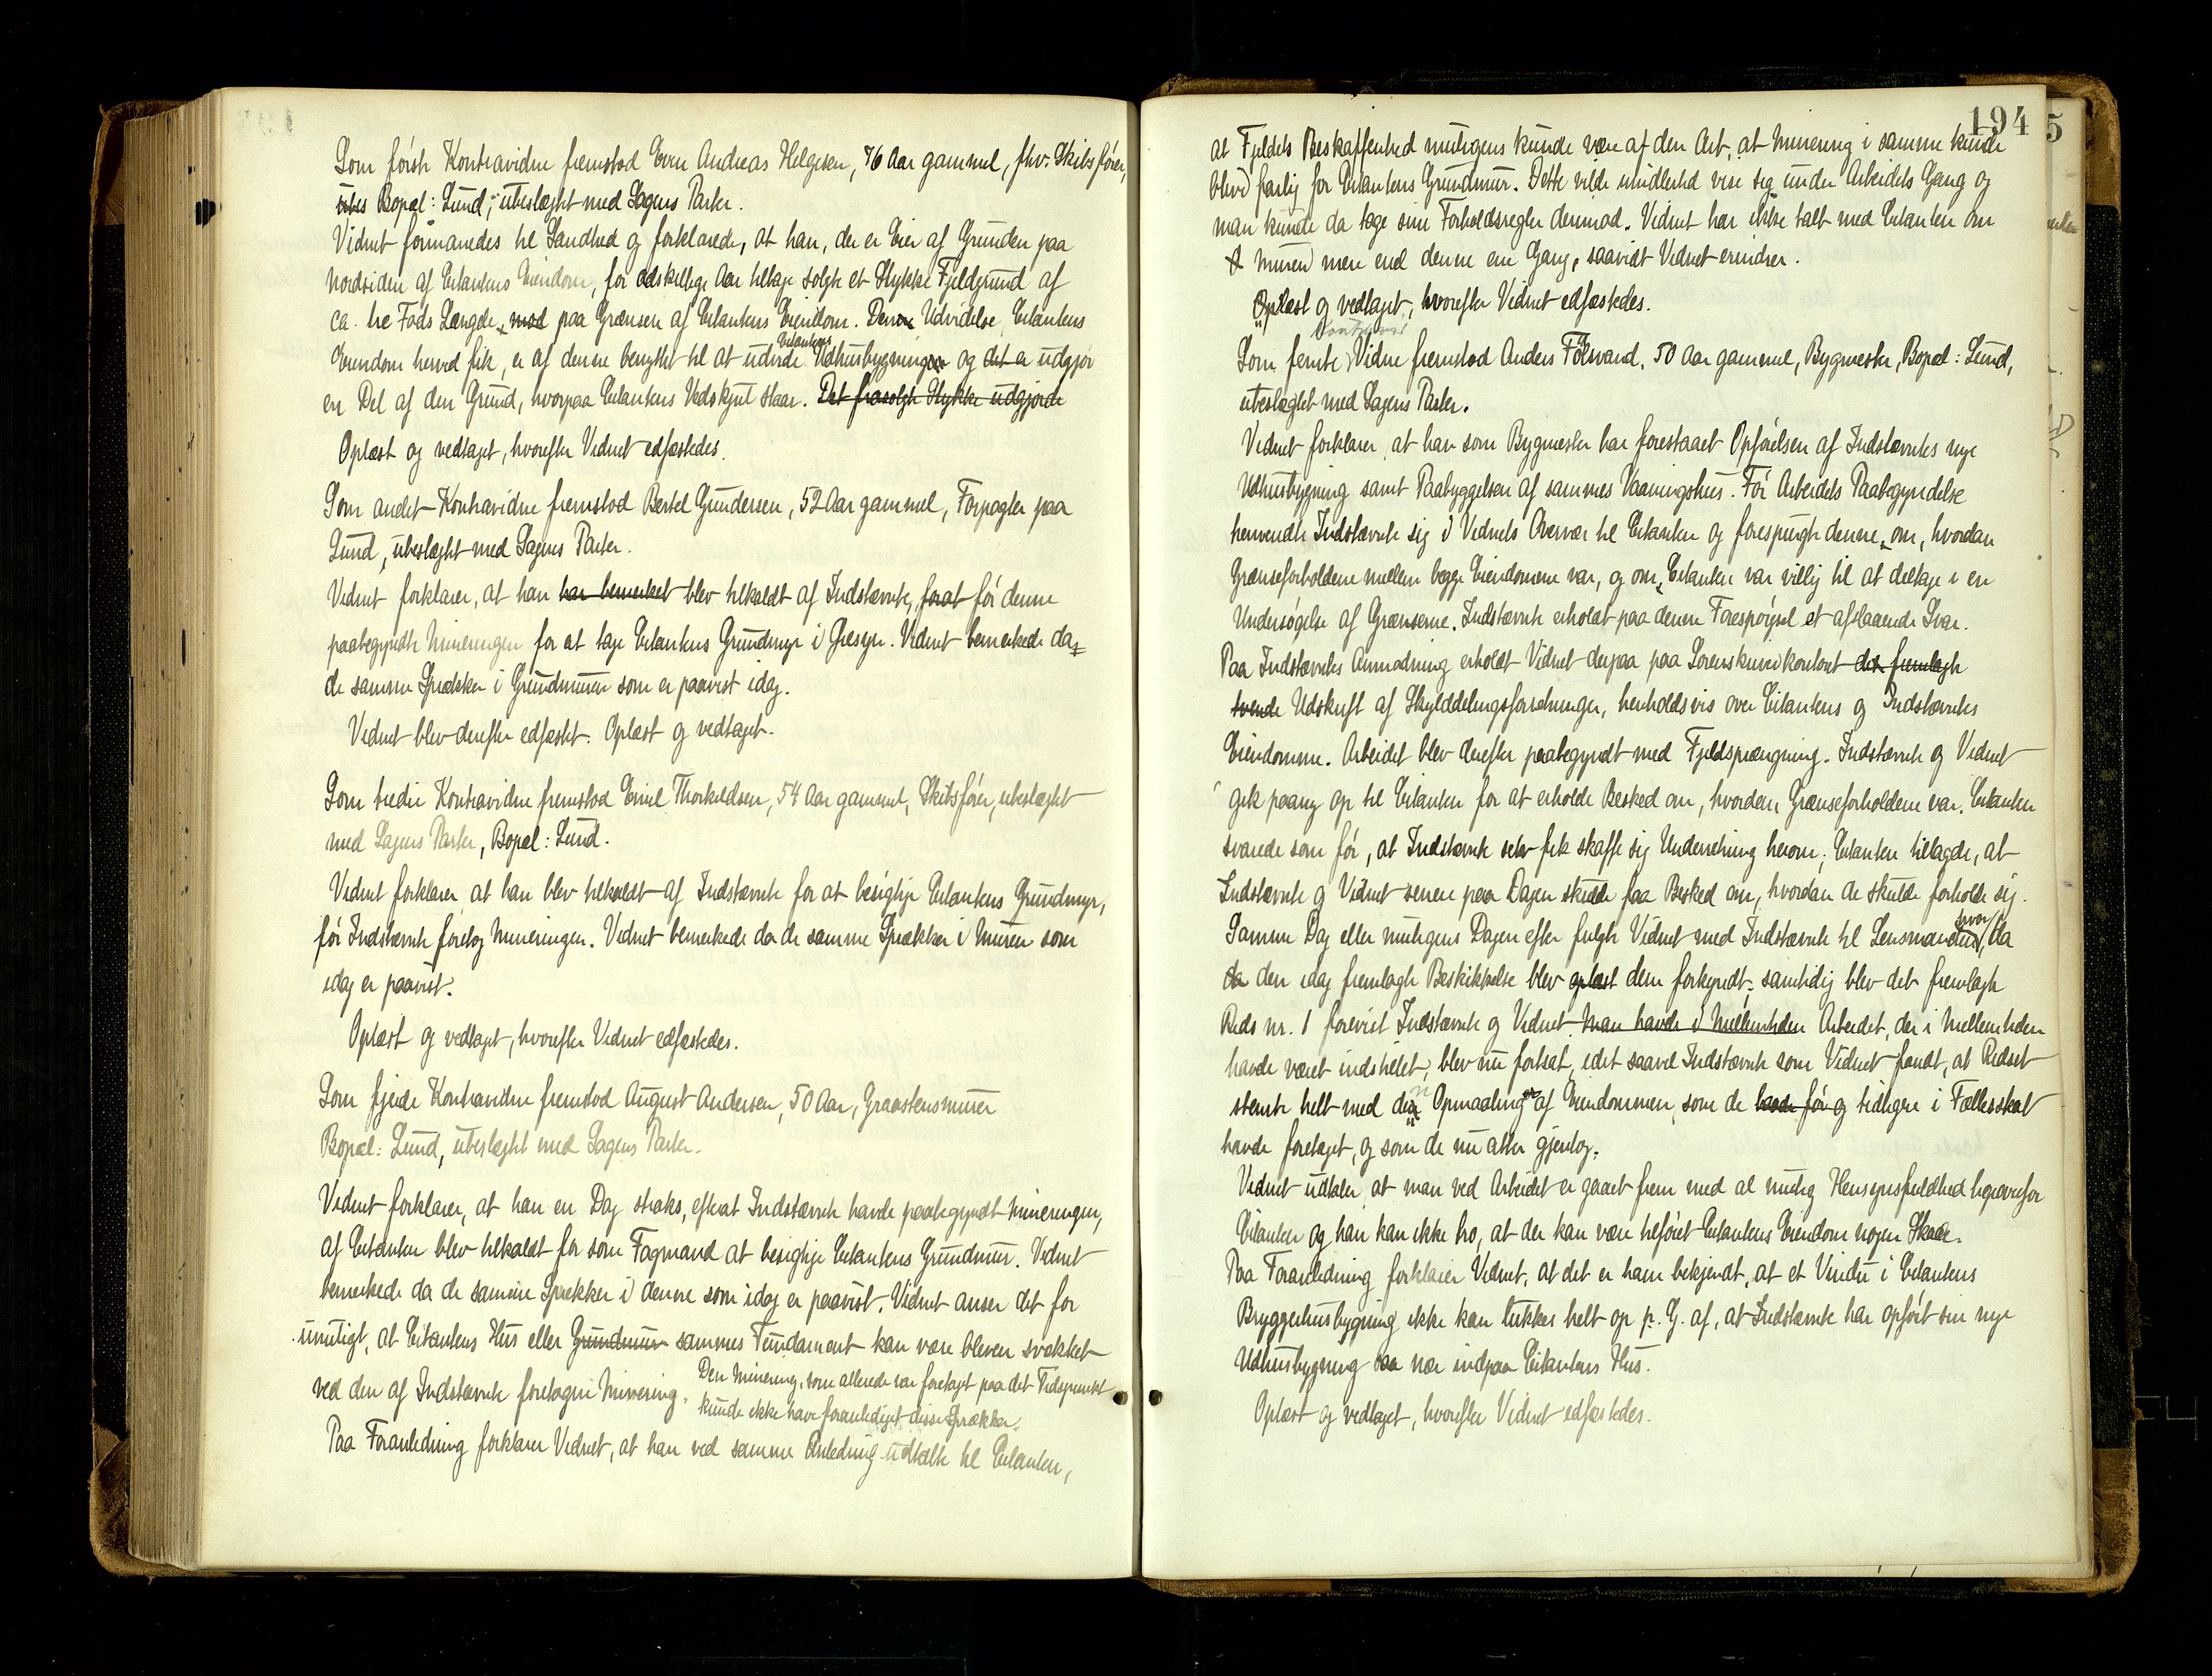 Som første Kontravidne fremstod Even Andreas Helgesen, 76 Aar gammel, fhv. Skibsfører,
ubes Bopæl: Lund, ubeslægtet med Sagens Parter.
Vidnet formanedes til Sandhed og forklarede, at han, der er Eier af Grunden paa
Nordsiden af Citantens Eiendom, for adskillige Aar tilbage solgte et Stykke Fjeldgrund af
ca. tre Fods Længde, mod paa Grænsen af Citantens Eiendom. Denne Udvidelse, Citantens
Eiendom herved fik, er af denne benyttet til at udvide Citantens Udhusbygninger og det er udgjør
en Del af den Grund, hvorpaa Citantens Vedskjul staar. Det frasolgte Stykke udgjorde
Oplæst og vedtaget, hvorefter Vidnet edfæstedes.
Som andet Kontravidne fremstod Bertel Gundersen, 52 Aar gammel, Forpagter paa
Lund, ubeslægtet med Sagens Parter.
Vidnet forklarer, at han har bemerket blev tilkaldt af Indstævnte, forat før denne
paabegyndte Mineringen for at tage Citantens Grundmur i Øiesyn. Vidnet bemerkede da
de samme Sprækker i Grundmuren som er paavist idag.
Vidnet blev derefter edfæstet. Oplæst og vedtaget.
Som tredie Kontravidne fremstod Emil Thorkildsen, 54 Aar gammel, Skibsfører, ubeslægtet
med Sagens Parter, Bopæl: Lund.
Vidnet forklarer, at han blev tilkaldt af Indstævnte for at besigtige Citantens Grundmur,
før Indstævnte foretog Mineringen. Vidnet bemerkede da de samme Sprækker i Muren som
idag er paavist.
Oplæst og vedtaget, hvorefter Vidnet edfæstedes.
Som fjerde Kontravidne fremstod August Andersen, 50 Aar, Graastensmurer
Bopæl: Lund, ubeslægtet med Sagens Parter.
Vidnet forklarer, at han en Dag straks, efterat Indstævnte havde paabegyndt Mineringen,
af Citanten blev tilkaldt for som Fagmand at besigtige Citantens Grundmur. Vidnet
bemerkede da de samme Sprækker i denne som idag er paavist. Vidnet anser det for
umuligt, at Citantens Hus eller Grundmur sammes Fundament kan være bleven svækket
ved den af Indstævnte foretagne Minering. Den Minering, som allerede var foretaget paa det Tidspunkt
kunde ikke have foranlediget disse Sprækker.
Paa Foranledning forklarer Vidnet, at han ved samme Anledning udtalte til Citanten,
194
5
at Fjeldets Beskaffenhed muligens kunde være af den Art, at Minering i samme kunde
blive farlig for Citantens Grundmur. Dette vilde imidlertid vise sig under Arbeidets Gang og
man kunde da tage sine Forholdsregler derimod. Vidnet har ikke talt med Citanten om
Muren mere end denne ene Gang, saavidt Vidnet erindrer.
Oplæst og vedtaget, hvorefter Vidnet edfæstedes.
Som femte Kontra Vidne fremstod Anders, 50 Aar gammel, Bygmester, Bopæl: Lund,
ubeslægtet med Sagens Parter.
Vidnet forklarer, at han som Bygmester har forestaaet Opførelsen af Indstævntes nye
Udhusbygning samt Paabyggelsen af sammes Vaaningshus. Før Arbeidets Paabegyndelse
henvendte Indstævnte sig i Vidnets Overvær til Citanten og forespurgte denne, om, hvordan
Grænseforholdene mellem begge Eiendomme var, og om Citanten var villig til at deltage i en
Undersøgelse af Grænserne. Indstævnte erholdt paa denne Forespørgsel et afslaaende Svar.
Paa Indstævntes Anmodning erholdt Vidnet derpaa paa Sorenskriverkontoret det fremlagte
tvende Udskrift af Skylddelingsforretninger, henholdsvis over Citantens og Indstævntes
Eiendomme. Arbeidet blev derefter paabegyndt med Fjeldsprængning. Indstævnte og Vidnet
gik paany op til Citanten for at erholde Besked om, hvordan Grænseforholdene var. Citanten
svarede som før, at Indstævnte selv fik skaffe sig Underretning herom; Citanten tillagde, at
Indstævnte og Vidnet senere paa Dagen skulde faa Besked om, hvordan de skulde forholde sig.
Samme Dag eller muligens Dagen efter fulgte Vidnet med Indstævnte til Lensmanden, hvor da
da den idag fremlagte Beskikkelse blev oplæst dem forkyndt; samtidig blev det fremlagte
Rids nr. 1 forevist Indstævnte og Vidnet. Man havde i Mellemtiden Arbeidet, der i Mellemtiden
havde været indstillet, blev nu fortsat, idet saavel Indstævnte som Vidnet fandt, at Ridset
stemte helt med den Opmaaling af Eiendommen, som de havde før og tidligere i Fællesskab
havde foretaget, og som de nu atter gjentog.
Vidnet udtaler, at man ved Arbeidet er gaaet frem med al mulig Hensynsfuldhed ligeoverfor
Citanten og han kan ikke tro, at der kan være tilføiet Citantens Eiendom nogen Skade.
Paa Foranledning forklarer Vidnet, at det er ham bekjendt, at et Vindu i Citantens
Bryggerhusbygning ikke kan lukkes helt op p. G. af, at Indstævnte har opført sin nye
Udhusbygning saa nær indpaa Citantens Hus.
Oplæst og vedtaget, hvorefter Vidnet edfæstedes.